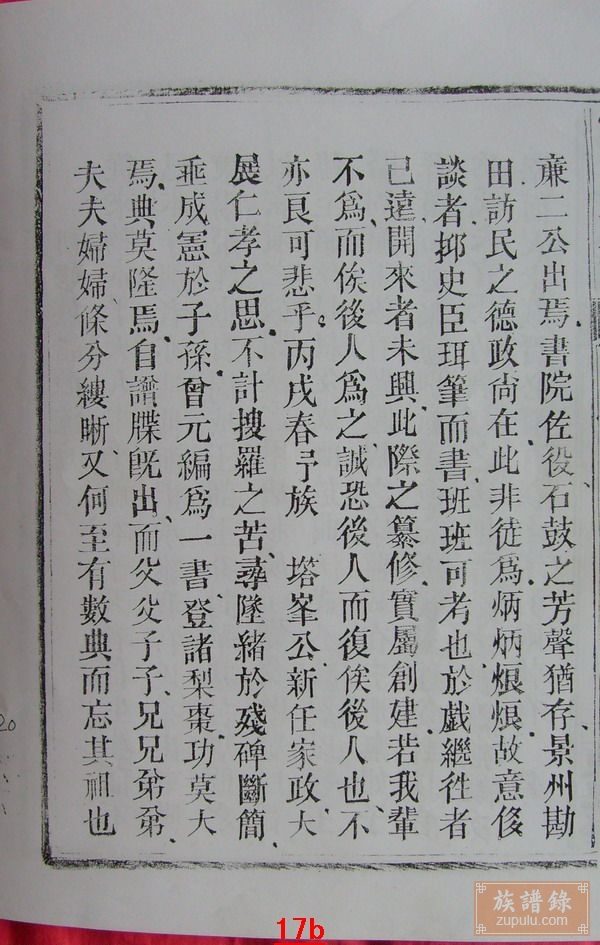 亷二公出焉書院佐役石鼓之芳聲猶存景州勘
田訪民之德政尚在此非徒爲炳炳烺烺故意侈
談者抑史臣珥筆而書班班可考也於戲繼徃者
已遠開來者未興此際之纂修實屬創建若我輩
不爲而俟後人爲之誠恐後人而復俟後人也不
亦良可悲乎丙戌春予族 塔峯公新任家政大
展仁孝之思不計搜羅之苦尋墜緒於殘碑斷簡
垂成憲於子孫曾元編爲一書登諸梨棗功莫大
焉典莫隆焉自譜牒旣出而父父子子兄兄弟弟
夫夫婦婦條分縷晰又何至有數典而忘其祖也
20
17b
族譜錄
zupulu.com